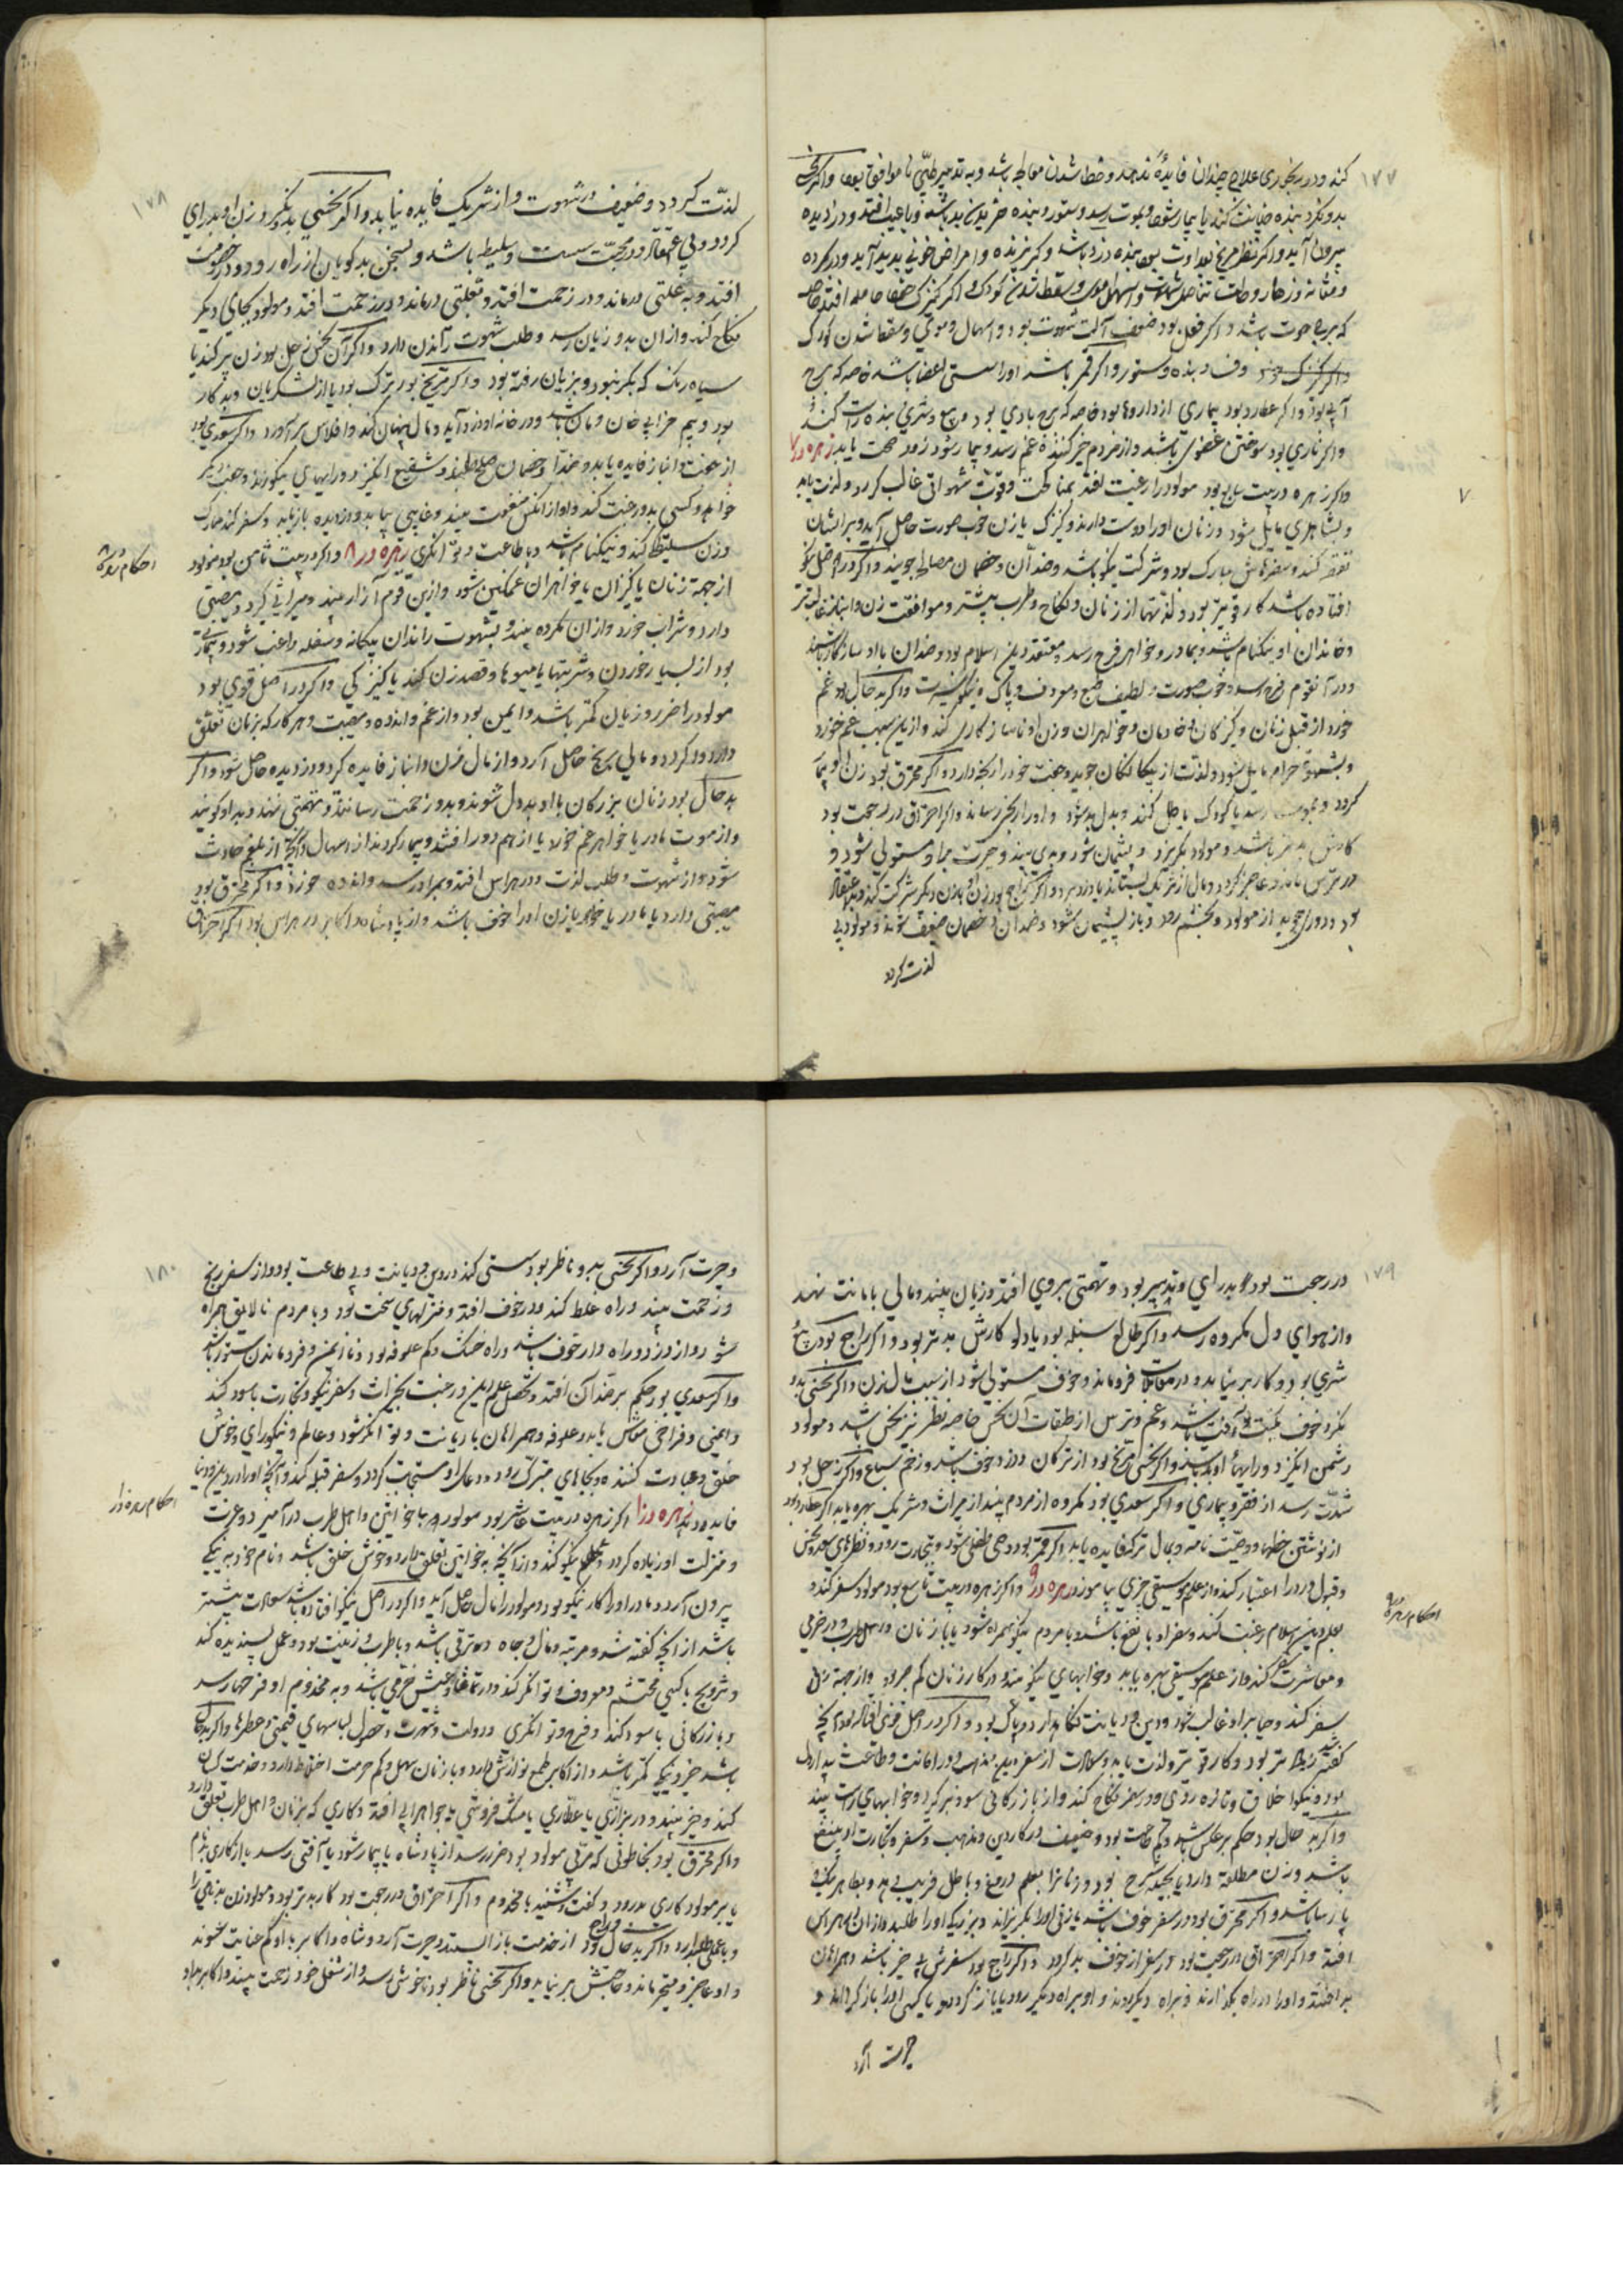 ۱۷۷
کند و در رنجوری علاج چندان فایدهٔ ندهد و خطا شدن معالجه باشد و به تدبیر طبّی ناموافق بود و اگر نحسی
بدو نگرد بنده خیانت کند یا بیمار شود و بموت رسد و ستور و بنده خریدن بد باشد و باعیب افتد و دزدیده
بیرون آید و اگر نظر مریخ بعداوت بود بنده دزد باشد و گریزنده و امراض خونی پدید آید و در گرده
و مثانه
که برج حوت باشد و اگر زحل بود ضعف آلت شهوت بود و اسهال و سقط شدن کودک
و فساد بنده و ستور و اگر قمر باشد او را سستی اعضا باشد خاصه که برج
آبی بود و اگر عطارد بود بیماری از داروها بود خاصه که برج بادی بود و بیع و شری بنده راست کند
و اگر ناری بود سوختن عضوی باشد و از مردم خبر کننده غم رسد و بیمار شود زود صحت یابد زهره در ۷
و اگر زهره در بیت سابع بود مولود را رغبت افتد بمناکحت و قوّت شهوانی غالب گردد و لذت یابد
و بشاهدی مایل شود و زنان او را دوست دارند و کنیزک یا زن خوب صورت حاصل آید و بر ایشان
تفاخر کند و سفرهاش مبارک بود و شرکت نیکو باشد و ضدّان و خصمان مصالح جویند و اگر در اصل نیکو
افتاده باشد کار قوی‌تر بود و لذتها از زنان و نکاح و طرب بیشتر و موافقت زن و انباز غالب‌تر
و خاندان او نیکنام باشد و بمادر و خواهر فرح رسد و معتقد دین اسلام بود و ضدان با او سازگار باشند
و در آن قوم فرح رسد و خوب صورت و لطیف طبع و معروف و پاکیزه و اگر بد حال بود غم
خورد از قبل زنان و کنیزکان و خادمان و خواهران و زن او ناسازگاری کند و از این سبب غم خورد
و بشهوت حرام مایل شود و لذت از بیگانگان جوید و جفت خود را رنجه دارد و اگر محترق بود زن او بیمار
گردد و بموت رسد یا کودک باطل کند و بددل بشود و او را رنج رساند و اگر احتراق در رجعت بود
کارش بدتر باشد و مولود بگریزد و پشیمان شود و بدی بیند و حیرت بر او مستولی شود و
در ترس بماند و عاجز گردد و مال از شریک بستاند یا دزد برد و اگر راجع بود زن او با زن دیگر شرکت کند و بداعتقاد
بود و دوری جوید از مولود و بخشم رود و باز پشیمان شود و ضدان و خصمان ضعیف شوند و مولود بی
لذت گردد
۷
۱۷۸
لذّت گردد و ضعیف در شهوت و از شریک فایده نیابد و اگر نحسی بد نگرد زن او بدرای
گردد و بی اعتقاد و در محبّت سست و سلیطه باشد و بسخن بدگویان از راه رود و در خصومت
افتد و به علتی درماند و در زحمت افتد و مولود بجای دیگر
نکاح کند و از ان بدو زیان رسد و طلب شهوت راندن دارد و اگر آن نحس زحل بود زن پیر کند یا
سیاه رنگ که بکر نبود و بزیان رفته بود و اگر مریخ بود ترک بود یا از لشکریان و بدکار
بود و بیم خرابی خان و مان باشد و در خانه او دزد آید و مال پنهان کند و افلاس برآورد و اگر سعدی بود
از جفت و انباز فایده یابد و ضدان و خصمان صلح طلبند و شفیع انگیزد و رایهای نیکو زند و جفت دیگر
خواهد و کسی بدو رغبت کند و او از آنکس منفعت بیند و غایبی بیابد و دزدیده باز یابد و سفر کند مبارک
و زن سلیطگی کند و نیکنام باشد و باطاعت و توانگری زهره در ۸ و اگر در بیت ثامن بود مولود
از جهة زنان یا کنیزان یا خواهران غمگین شود و ازین قوم آزار بیند و میراثی گیرد و مصیبتی
دارد و شراب خورد و از ان مکروه بیند و بشهوت راندان بیگانه و سفله راغب شود و بیمار
بود از بسیار خوردن و شربتها یا میوها و قصد زن کند یا کنیزکی و اگر در اصل قوی بود
مولود را ضرر و زیان کمتر باشد و ایمن بود و از غم و اندوه و مصیبت و هر کار که بزنان تعلّق
دارد و مالی برنج حاصل آرد و از مال زن و انباز فایده گیرد و دزدیده حاصل شود و اگر
بد حال بود زنان بزرگان با او بددل شوند و بدو زحمت رسانند و تهمتی نهند و بد او گویند
و از موت مادر یا خواهر غم خورد یا از هم دور افتند و بیمار گردند از اسهال و آنچه از بلغم حادث
شود و از شهوت و طلب لذت و در هراس افتد و بمراد رسد و اندوه خورد و اگر محترق بود
مصیبتی دارد یا مادر یا خواهر یا زن او را خوف باشد و از پادشاه و اکابر در هراس بود اگر احتراق
احکام زهره ۸
۱۷۹
در رجعت بود بدرای و بدتدبیر بود و تهمتی بر وی افتد و زیان بیند و مالی بامانت نهد
و از هوای دل مکروه رسد و اگر طالع سنبله بود یا دلو کارش بدتر بود و اگر راجع بود در بیع
شری بود و کار بر نیاید و در معاملات فروماند و خوف مستولی شود از سبب مال زن و اگر نحسی بدو
نگرد خوف نکبت و آفت باشد و غم و ترس از طبقات آن نحس خاصه نظر نیز نحس باشد و مولود
دشمن انگیزد و رایهاء او بد باشد و اگر نحسی مریخ بود از ترکان و دزد خوف باشد و زخم سباع و اگر زحل بود
شدّت رسد از فقر و بیماری و اگر سعدی بود مکروه از مردم بیند از میراث و شریک بهره یابد اگر عطارد بود
از نوشتن خطها و وصیّت نامه و بمال ترکه فایده یابد و اگر قمر بود وصی طفلی شود و تجارت رود و نظرهای سعد و نحس
و قبول و رد را اعتبار کند و از علم موسیقی چیزی بیاموزد زهره در ۹ و اگر زهره در بیت تاسع بود مولود سفر کند و
بعلم دین اسلام رغبت کند و سفر او با نفع باشد و با مردم نیکو همراه شود یا با زنان و اهل طرب و در خرمی
و معاشرت سفر کند و از علم موسیقی بهره یابد و خوابهای نیکو بیند و در کار زنان کم بود و از جهة زنان
سفر کند و حیا بر او غالب شود و دین و دیانت نگاه دارد و پاک بود و اگر در اصل قوی افتاده بود آنچه
گفته شد زیادت‌تر بود و کار قوی‌تر و لذت یابد و سعادت از سفر بیند و در امانت و طاعت
بود و نیکو اخلاق و تازه روی و در سفر نکاح کند و از بازرگانی سود برگیرد و خوابهای راست بیند
و اگر بد حال بود حکم بر عکس باشد و کم حاجت بود و ضعیف در کار دین و مذهب و سفر و تجارت او بی نفع
باشد و زن مطلقه دارد یا بچند کس نکاح بود و زنانرا بعلم دروغ و باطل فریب بدهد و بظاهر نیک و
پارسا باشد و اگر محترق بود در سفر خوف باشد یا زنی او را بگریزاند و بزرگی او را طلبد و از ان در هراس
افتد و اگر احتراق در رجعت بود در سفر از خوف بد گردد و اگر راجع بود سفرش بی خیر باشد و همراهان
بد افتند و او را در راه بگذارند و براه دیگر روند و او براه دیگر رود یا باز گردد یا کسی او را باز گرداند و
حیرت آرد
احکام زهره ۹
۱۸۰
و حیرت آرد و اگر نحسی بدو ناظر بود سستی کند در دین و دیانت و بی طاعت بود و از سفر رنج
و زحمت بیند و راه غلط کند و در خوف افتد و منزلهای سخت بود و با مردم نالایق همراه
شود و از دزد و راه دار خوف باشد و راه خشک و کم علوفه بود و ناایمن و فرو ماندن ستور باشد
و اگر سعدی بود حکم بر ضد آن افتد و تحصیل علم دین و رغبت بخیرات و سفر نیکو و تجارت باسود کند
و ایمنی و فراخی معاش یابد و علوفه و همراهان بادیانت و توانگر شود و عالم و نیکورای و خوش
خلق و عبادت کننده و بجاهای متبرک رود و دعای او مستجاب گردد و سفر قبله کند و آنچه او را در دین و دنیا
فایده دهد زهره در ۱۰ اگر زهره در بیت عاشر بود مولود با خواتین و اهل طرب درآمیزد و عزت
و منزلت او زیاده گردد و عملهای نیکو کند و از آنچه به خواتین تعلق دارد و خوش خلق باشد و نام خود به نیکی
بیرون آرد و مادر او را کار نیکو بود و مولود را مال حاصل آید و اگر در اصل نیکو افتاده باشد سعادت بیشتر
باشد از آنچه گفته شد و مرتبه و مال و جاه در ترقی باشد و باطرب و زینت بود و عمل پسندیده کند
و تزویج با کسی محتشم و معروف و توانگر کند و در تماشا و عیش خرّمی باشد و به مخدوم او فرحها رسد
و بازرگانی با سود کند و فرح و توانگری و دولت و شهرت و حصول لباسهای قیمتی و عطرها و اگر بد حال
باشد خیر و نیکی کمتر باشد و از اکابر طمع نوازش دارد و با زنان سهل و کم حرمت اختلاط دارد و خدمت کسان
کند و خیر نبیند و در بزازی یا عطاری یا مشک فروشی یا جواهرات افتد و کاری که بزنان و اهل طرب تعلّق دارد
و اگر محترق بود بخاطونی که مربّی مولود بود ضرر رسد از پادشاه یا بیمار شود یا آفتی رسد یا از کاری بدنام
یا بر مولود کاری بد رود و گفت و شنید با مخدوم و اگر احتراق در رجعت بود کار بدتر بود و مولود زن بدنامی را
و با عملی طلب دارد و اگر بد حال و راجع بود از خدمت باز ایستد و حیرت آرد و شاه و اکابر به او کم عنایت شوند
و او عاجز و متحیر ماند و حاجتش بر نیاید و اگر نحسی ناظر بود ناخوشی رسد و از شغل خود زحمت بیند و اکابر بمراد
احکام زهره در ۱۰